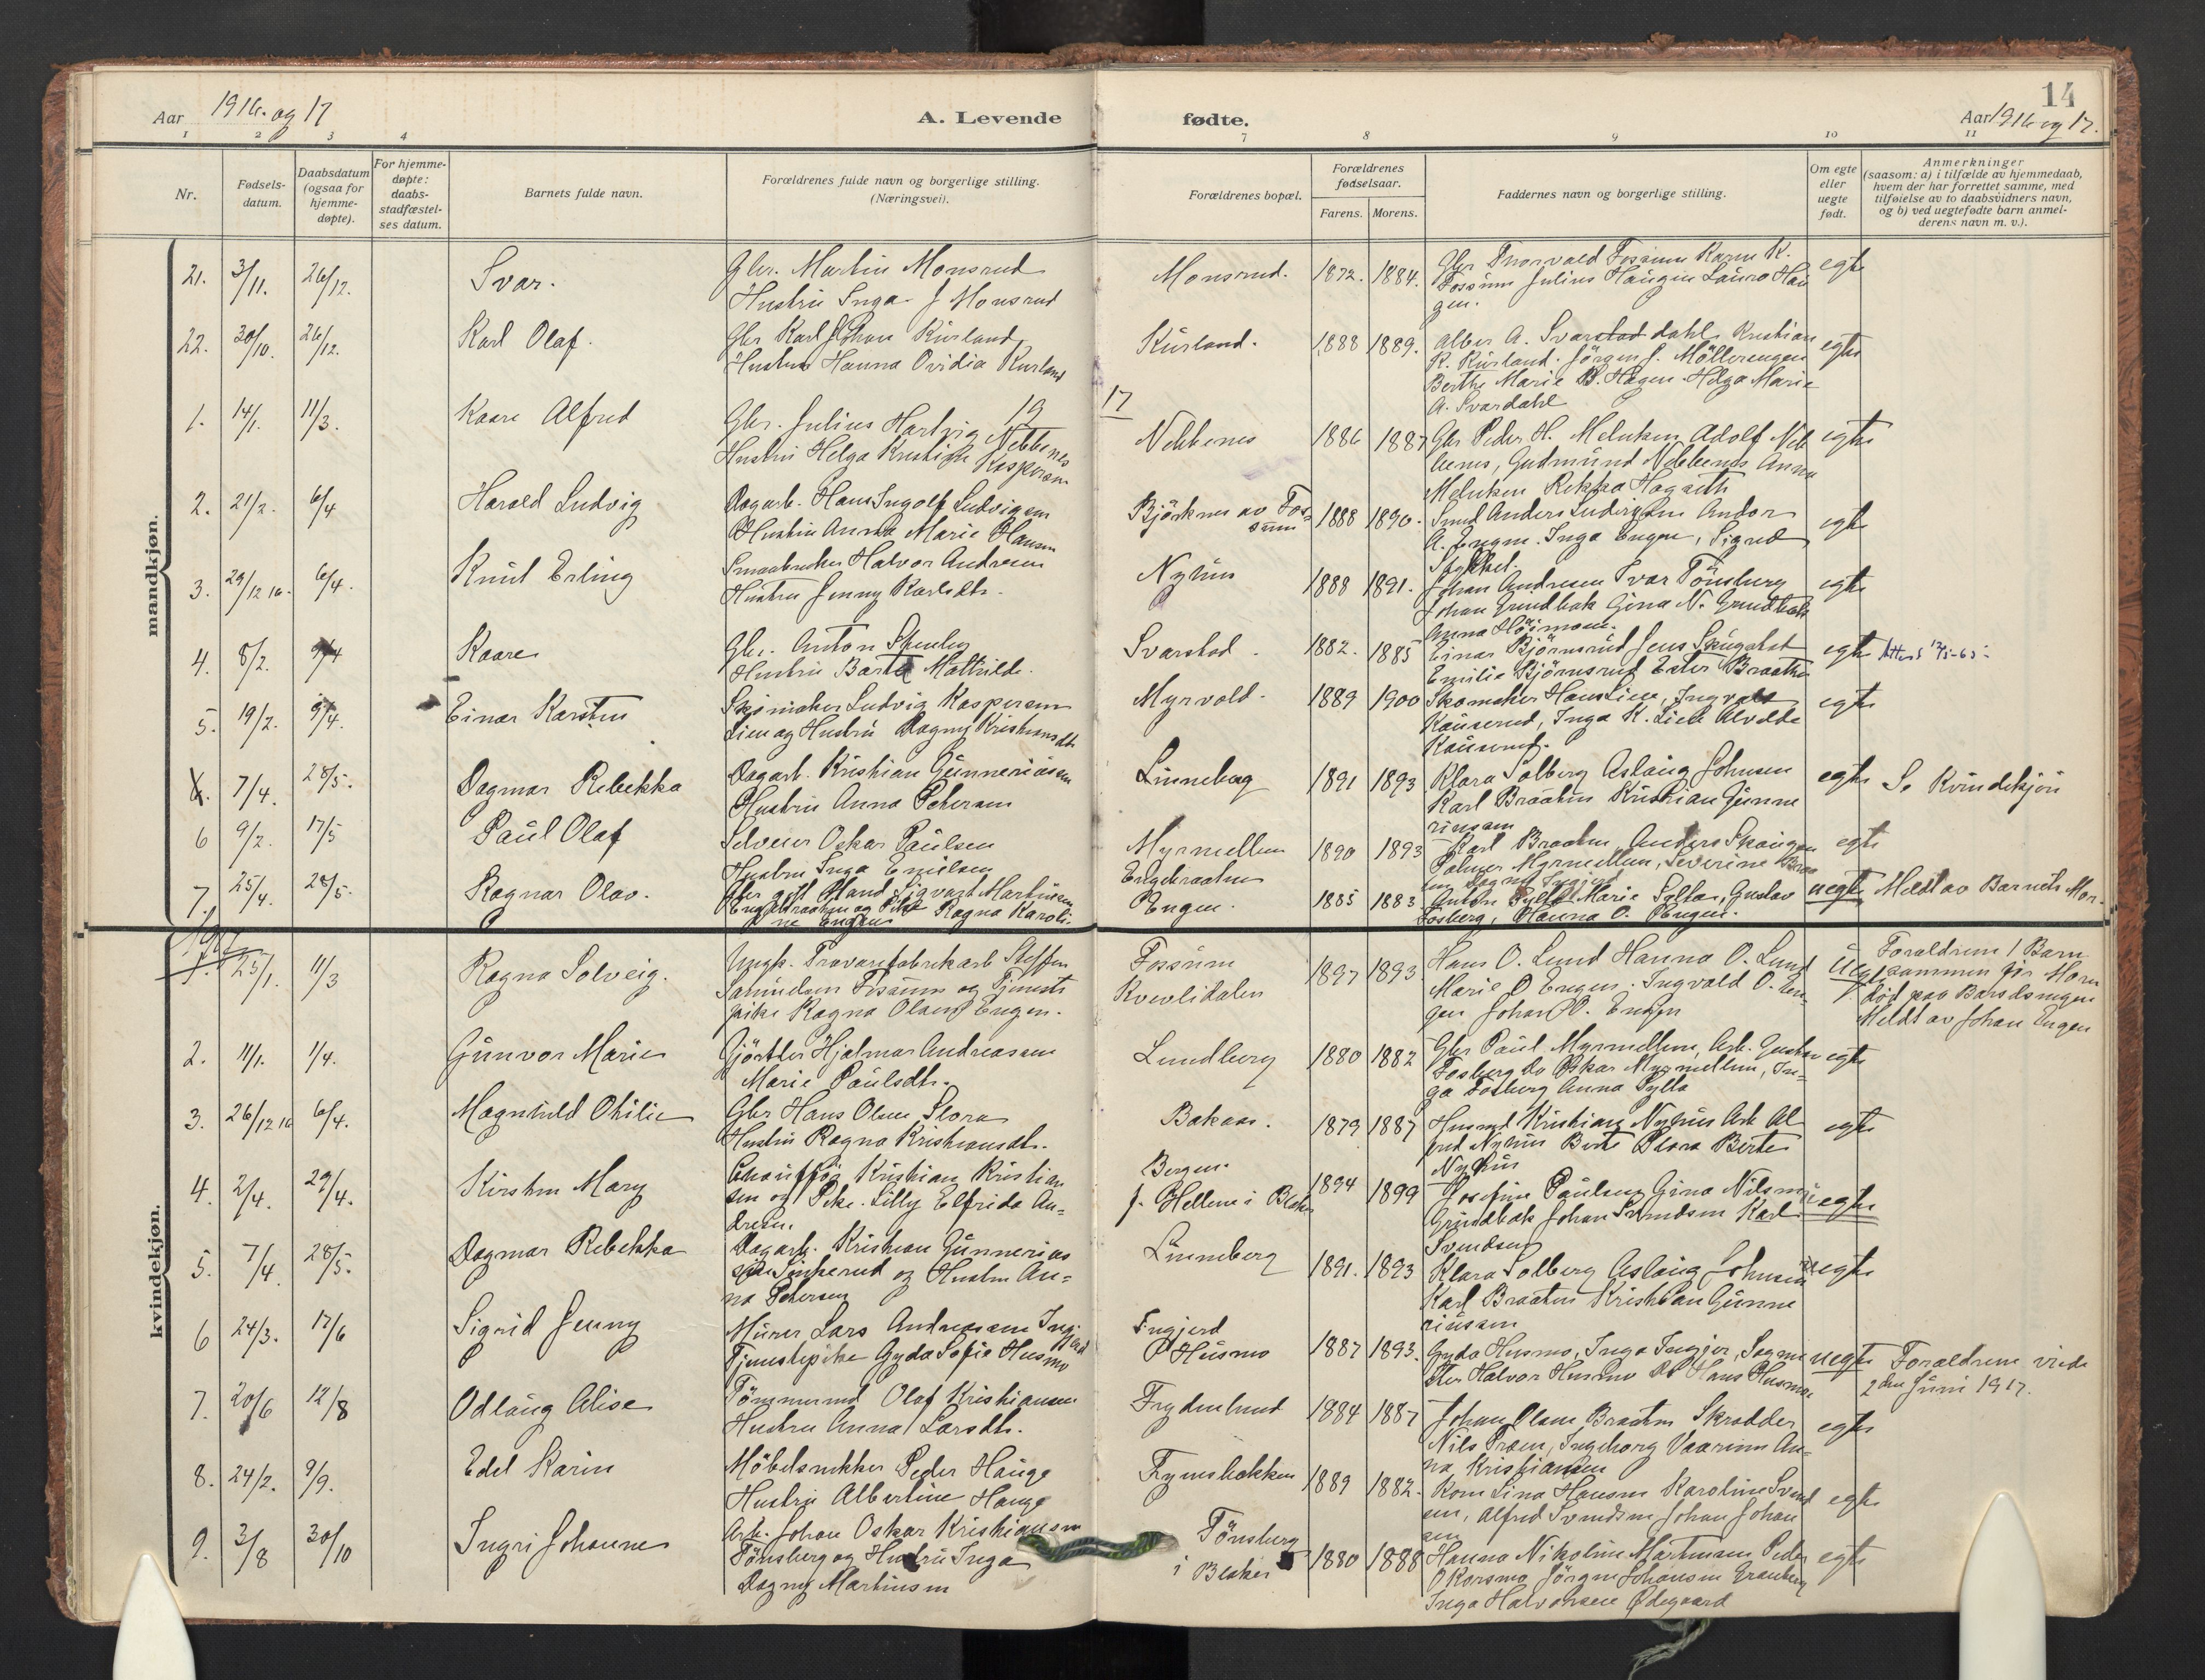 14
Aar 1916 og 17
A. Levende fødte.
Aar 1916 og 17.
1 2 3 4 7 8 9 10 11
Nr.
Fødsels-
datum.
Daabsdatum
(ogsaa for
hjemme-
døpte).
For hjemme-
døpte:
daabs-
stadfæstel-
ses datum.
Barnets fulde navn.
Forældrenes fulde navn og borgerlige stilling.
(Næringsvei).
Forældrenes bopæl.
Forældrenes
fødselsaar.
Farens. Morens.
Faddernes navn og borgerlige stilling.
Om egte
eller
uegte
født.
Anmerkninger
(saasom: a) i tilfælde av hjemmedaab,
hvem der har forrettet samme, med
tilføielse av to daabsvidners navn,
og b) ved uegtefødte barn anmel-
derens navn m. v.).
mandkjøn.
21. 3/11. 26/12. Ivar. Gbr. Martin Monsrud
Hustru Inga J Monsrud
Monsrud. 1872. 1884. Gbr Thorvald Fossum Karen K.
Fossum Julius Haugen Laura Hau
gen.
egte
22. 30/10. 26/12. Karl Olaf. Gbr Karl Johan Kurland
Hustru Hanna Ovidia Kurland
Kurland. 1888 1889. Alber A. Svarstad dahl, Kristian
K. Kurland. Jörgen J. Möllerengen
Berthe Marie B. Hagen Helga Marie
A. Svardahl
egte
19 17
1. 14/1. 11/3. Kaare Alfred Gbr. Julius Hartvig Nebbenes
Hustru Helga Kristine Kaspersen
Nebbenes 1886 1887 Gbr Peder H. Melnken Adolf Neb
benes, Gudmund Nebbenes Anna
Melnken Rekka Hogseth
egte
2. 21/2. 6/4 Harald Ludvig Dagarb. Hans Ingolf Ludvigsen
Hustru Anna Marie Hansen
Björknes av Fos-
sum
1888 1890. Smed Anders Ludvigsen Andor
A. Engen. Inga Engen, Sigrid
egte
3. 29/12 16. 6/4. Knut Erling Smaabruker Halvor Andresen
Hustru Jenny Karlsdtr.
Nyhus 1888 1891. Johan Andresen Ivar Tönsberg
Johan Grundbak Gina N. Grundbak
egte
4. 8/2. 9/4 Kaare Gbr. Anton
Hustru Mathilde.
Svarstad. 1882. 1885 Einar Björnsrud Jens
Emilie Björnsrud Ester Braathen
egte
5. 19/2. 9/4. Einar Karsten Skomaker Ludvig Kaspersen
Lien og Hustru Dagny Kristiansdtr
Myrvold. 1889 1900 Skomaker Hans Lien, Ingvald
Kauserud, Inga K. Lien Alvilde
Kauserud.
egte
6. 7/4. 28/5. Dagmar Rebekka Dagarb. Kristian Gunneriusen
Hustru Anna Petersen
Linneberg 1891 1893 Klara Solberg Aslaug Johnsen
Karl Braaten Kristian Gunne
riusen
egte Se Kvindekjön
6 9/2. 17/5 Paul Olaf Selveier Oskar Paulsen
Hustru Inga Emilsen
Myrmellem 1890 1893 Karl Braaten, Anders
Palmer Myrmellem, Severine
egte
7. 25/4. 28/5. Ragnar Olav. Gbr gift Mand Sigvart Martinsen
Engebraaten og Pike Ragna Karoli-
ne Engen
Engebraaten
Engen. 1885 1883 Anton Sylta Marie Sylta, Gustav
Fosberg, Hanna O. Engen.
uegte Meldt av Barnets Mor.
kvindekjøn.
1917
1. 25/1. 11/3 Ragna Solveig. Ungk. Trævarefabrikarb Steffen
Samuelsen Fossum og Tjeneste
pike Ragna Olsen Engen.
Fossum
Kvevlidalen
1897 1893. Hans O. Lund Hanna O. Lund
Marie O Engen. Ingvald O. En-
gen Johan O. Engen
Uegte
Forældrene 1 Barn
sammen for Moren
död paa Barselsengen
Meldt av Johan Engen
2. 11/1. 1/4. Gunvor Marie Gjörtler Hjalmar Andreassen
Marie Paulsdtr.
Lundberg 1880 1882 Gbr Paul Myrmellem, Arb. Gustav
Fosberg do Oskar Myrmellem, In-
ga Fosberg Anna Sylta
egte
3. 26/12 16 6/4. Magnhild Othilie Gbr Hans Olsen Slora
Hustru Ragna Kristiansdtr.
Bakaas. 1879 1887 Husmd Kristian Nyhus Arb Al
fred Nyhus Berte Slora Berte
Nyhus
egte
4. 2/4. 29/4. Kirsten Mary Chaufför Kristian Kristian
sen og Pike. Lilly Elfrida An-
dresen.
Bergen.
f. Hellem i Blaker
1894 1899 Josefine Paulsen Gina Nilsen
Grundbak Johan Svendsen Karl
Svendsen
uegte
5. 7/4. 28/5. Dagmar Rebekka Dagarb. Kristian Gunnerius
sen Sinkerud og Hustru An-
na Petersen
Linneberg 1891. 1893 Klara Solberg Aslaug Johnsen
Karl Braaten Kristian Gunne
riusen
egte
6 24/3. 17/6 Sigrid Jenny Murer Lars Andreassen Ingjerd
Tjenestepike Gyda Sofie Husmo
Ingjerd
Husmo
1887 1893. Gyda Husmo, Inga Ingjer,
Halvor Husmo Do Hans Husmo
uegte Forældrene viede
2den Juni 1917.
7. 20/6 12/8 Odlaug Alise Tömmermd Olaf Kristiansen
Hustru Anna Larsdtr.
Frydenlund 1884 1887 Johan Olsen Braaten Skrædder
Nils Træen, Ingeborg Vaarum An-
na Kristiansen
egte
8. 24/2. 9/9. Edel Karin Möbelsnekker Peder Hauge
Hustru Albertine Hauge
Fryensbakken 1889 1882. Kone Lina Hansen Karoline Svend
sen, Alfred Svendsen Johan Johan
sen
egte
9. 3/8 30/10 Ingri Johanne Arb. Johan Oskar Kristiansen
Tönsberg og Hustru Inga
Dagny Martinsen
Tönsberg
i Blaker
1880 1888 Hanna Nikoline Martinsen Peder
O Korsmo Jörgen Johansen Granberg
Inga Halvorsen Ødegaard
egte